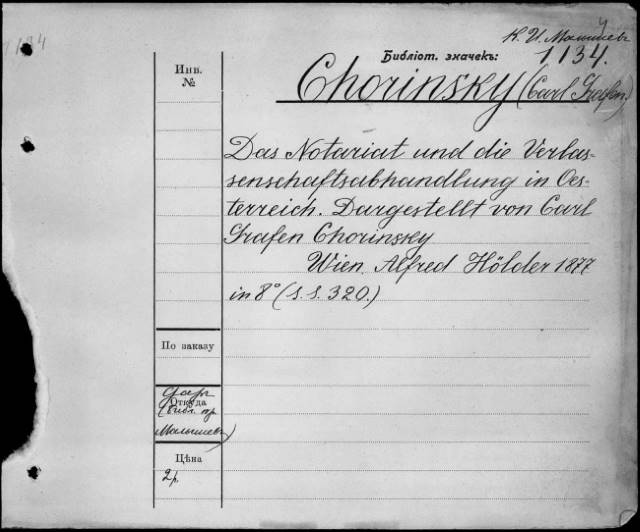 1134
К. И. Малышев
Библіот. значекъ:
1134.
Инв.
№
Chorinsky (Carl Grafen)
Das Notariat und die Verlas-
senschaftsabhandlung in Oes-
terreich. Dargestellt von Carl
Grafen Chorinsky
Wien. Alfred Hölder 1877
in 8° (S. S. 320.)
По заказу
Даръ
Откуда
(библ. пр.
Малышев)
Цѣна
2 р.